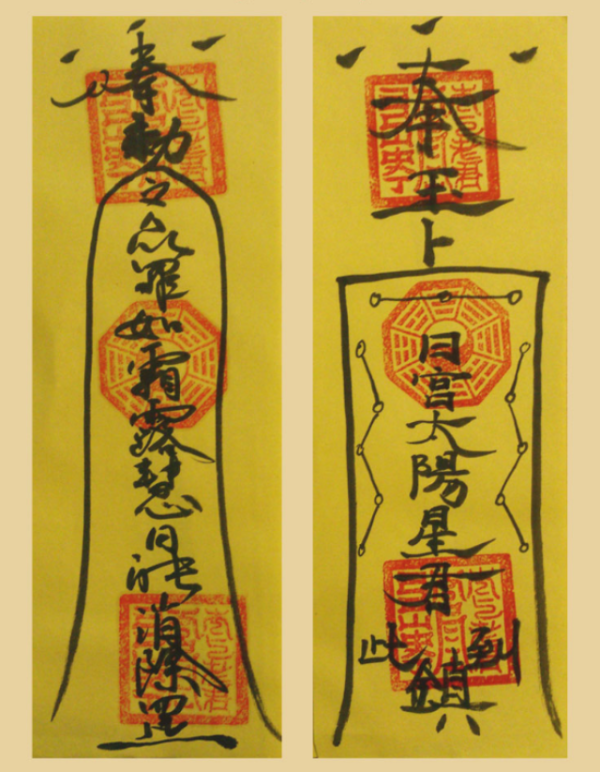 奉勅令众罪如霜露慧日能消除罡
奉玉卜
日宮太陽星君
到此鎮